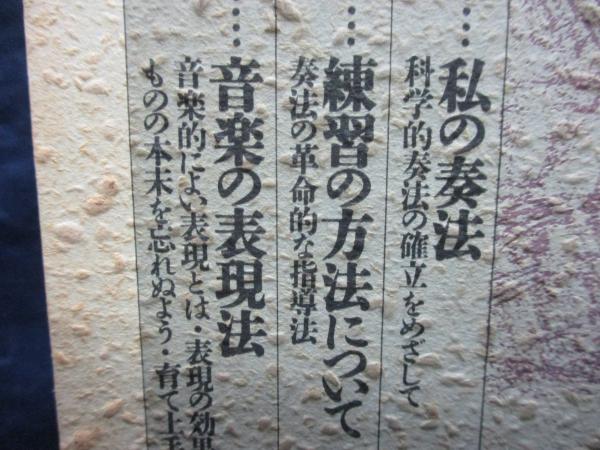 ……私の奏法
科学的奏法の確立をめざして
……練習の方法について
奏法の革命的な指導法
……音楽の表現法
音楽的によい表現とは・表現の効果
ものの本末を忘れぬよう・育て上手